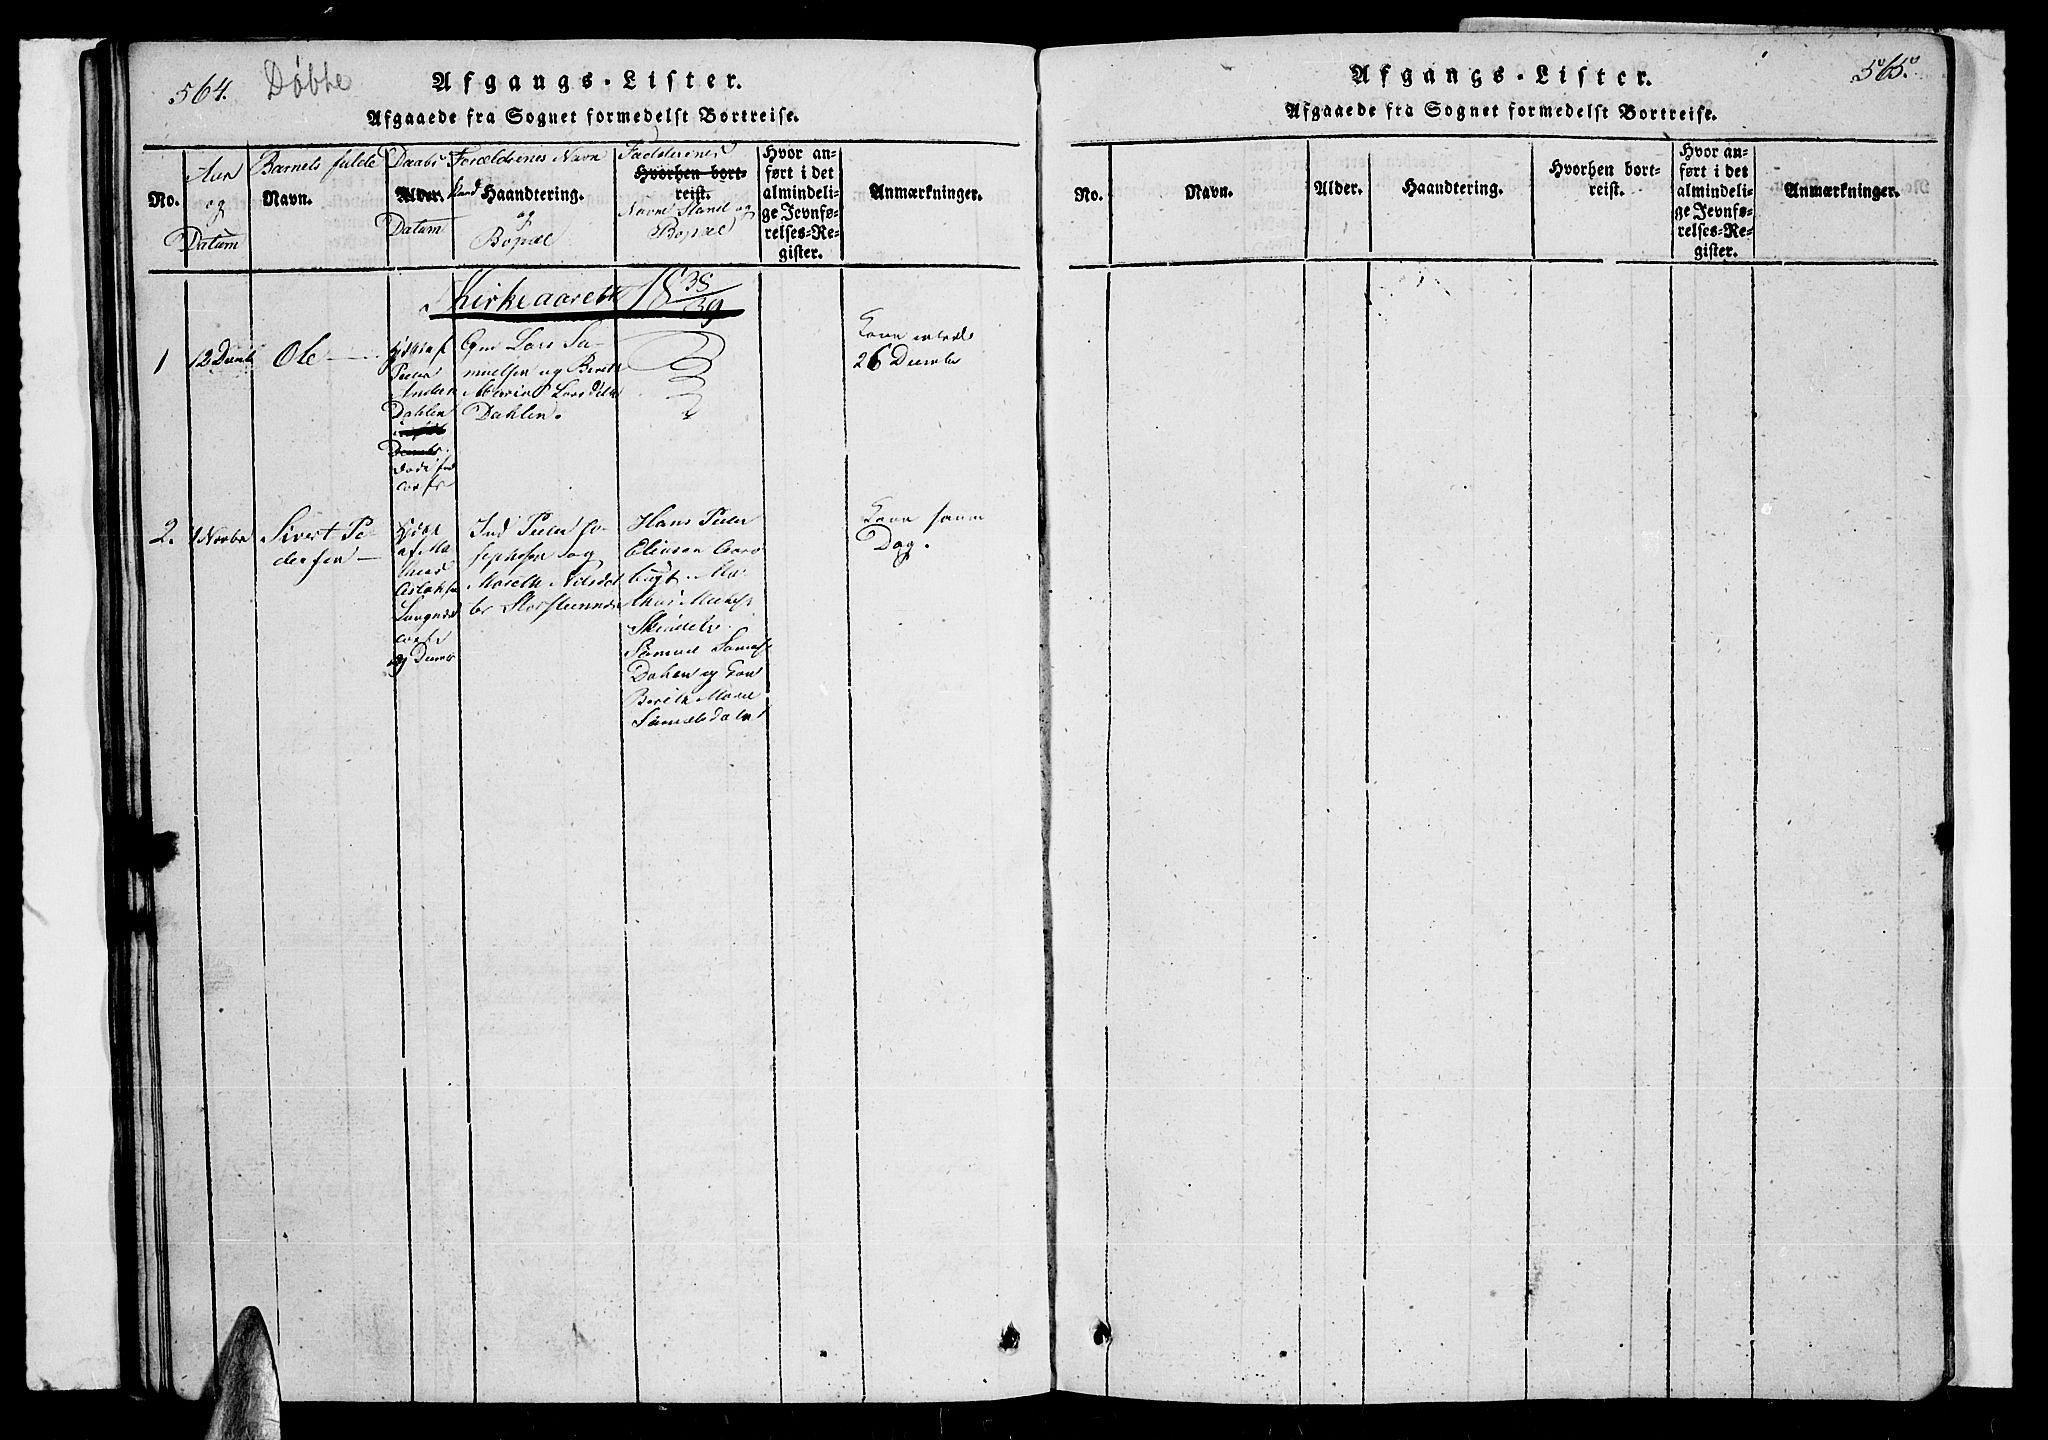 564. Döbte
Afgangs-Lister.
Afgaaede fra Sognet formedelst Bortreise.
No.
Aar
og
Datum
Barnets fulde
Navn.
Daabs
Alder.
Datum
Forældrenes Navn
Stand Haandtering.
og
Bopæl
Faddernes
Hvorhen bort-
reist.
Navne Stand og
Bopæl
Hvor an-
ført i det
almindeli-
ge Jevnfø-
relses-Re-
gister.
Anmærkninger.
Kirkeaaret 1838/39
1
12 Decmb
Ole
Peder
Anders
Dahlen
Lars Sa-
muelsen og Berith
Maria Larsdtr
Dahlen.
26 Decmbr
2.
1 Novbr
Sivert Pe-
dersen
af Ma-
thias
Aslaksen
Langnes
og
Ind Peder Jo-
sephsen og
Mareth Nilsdat-
ter Storsteennes
Hans Peder
Eliasen
Samuel
Dahlen og
Berith Marie
Samuelsdatter
samme
Dag.
565.
Afgangs-Lister.
Afgaaede fra Sognet formedelst Bortreise.
No.
Navn.
Alder.
Haandtering.
Hvorhen bort-
reist.
Hvor an-
ført i det
almindeli-
ge Jevnfø-
relses-Re-
gister.
Anmærkninger.